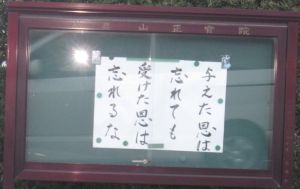 山正宮院
与えた恩は
忘れても
受けた恩は
忘れるな